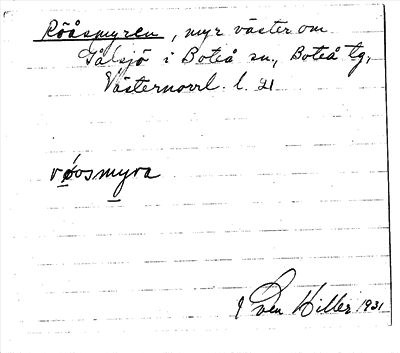 Rööåsmyren, myr väster om
Gålsjö i Boteå sn, Boteå tg,
Västernorrl. l. 21
röosmyra
Sven Hiller 1931